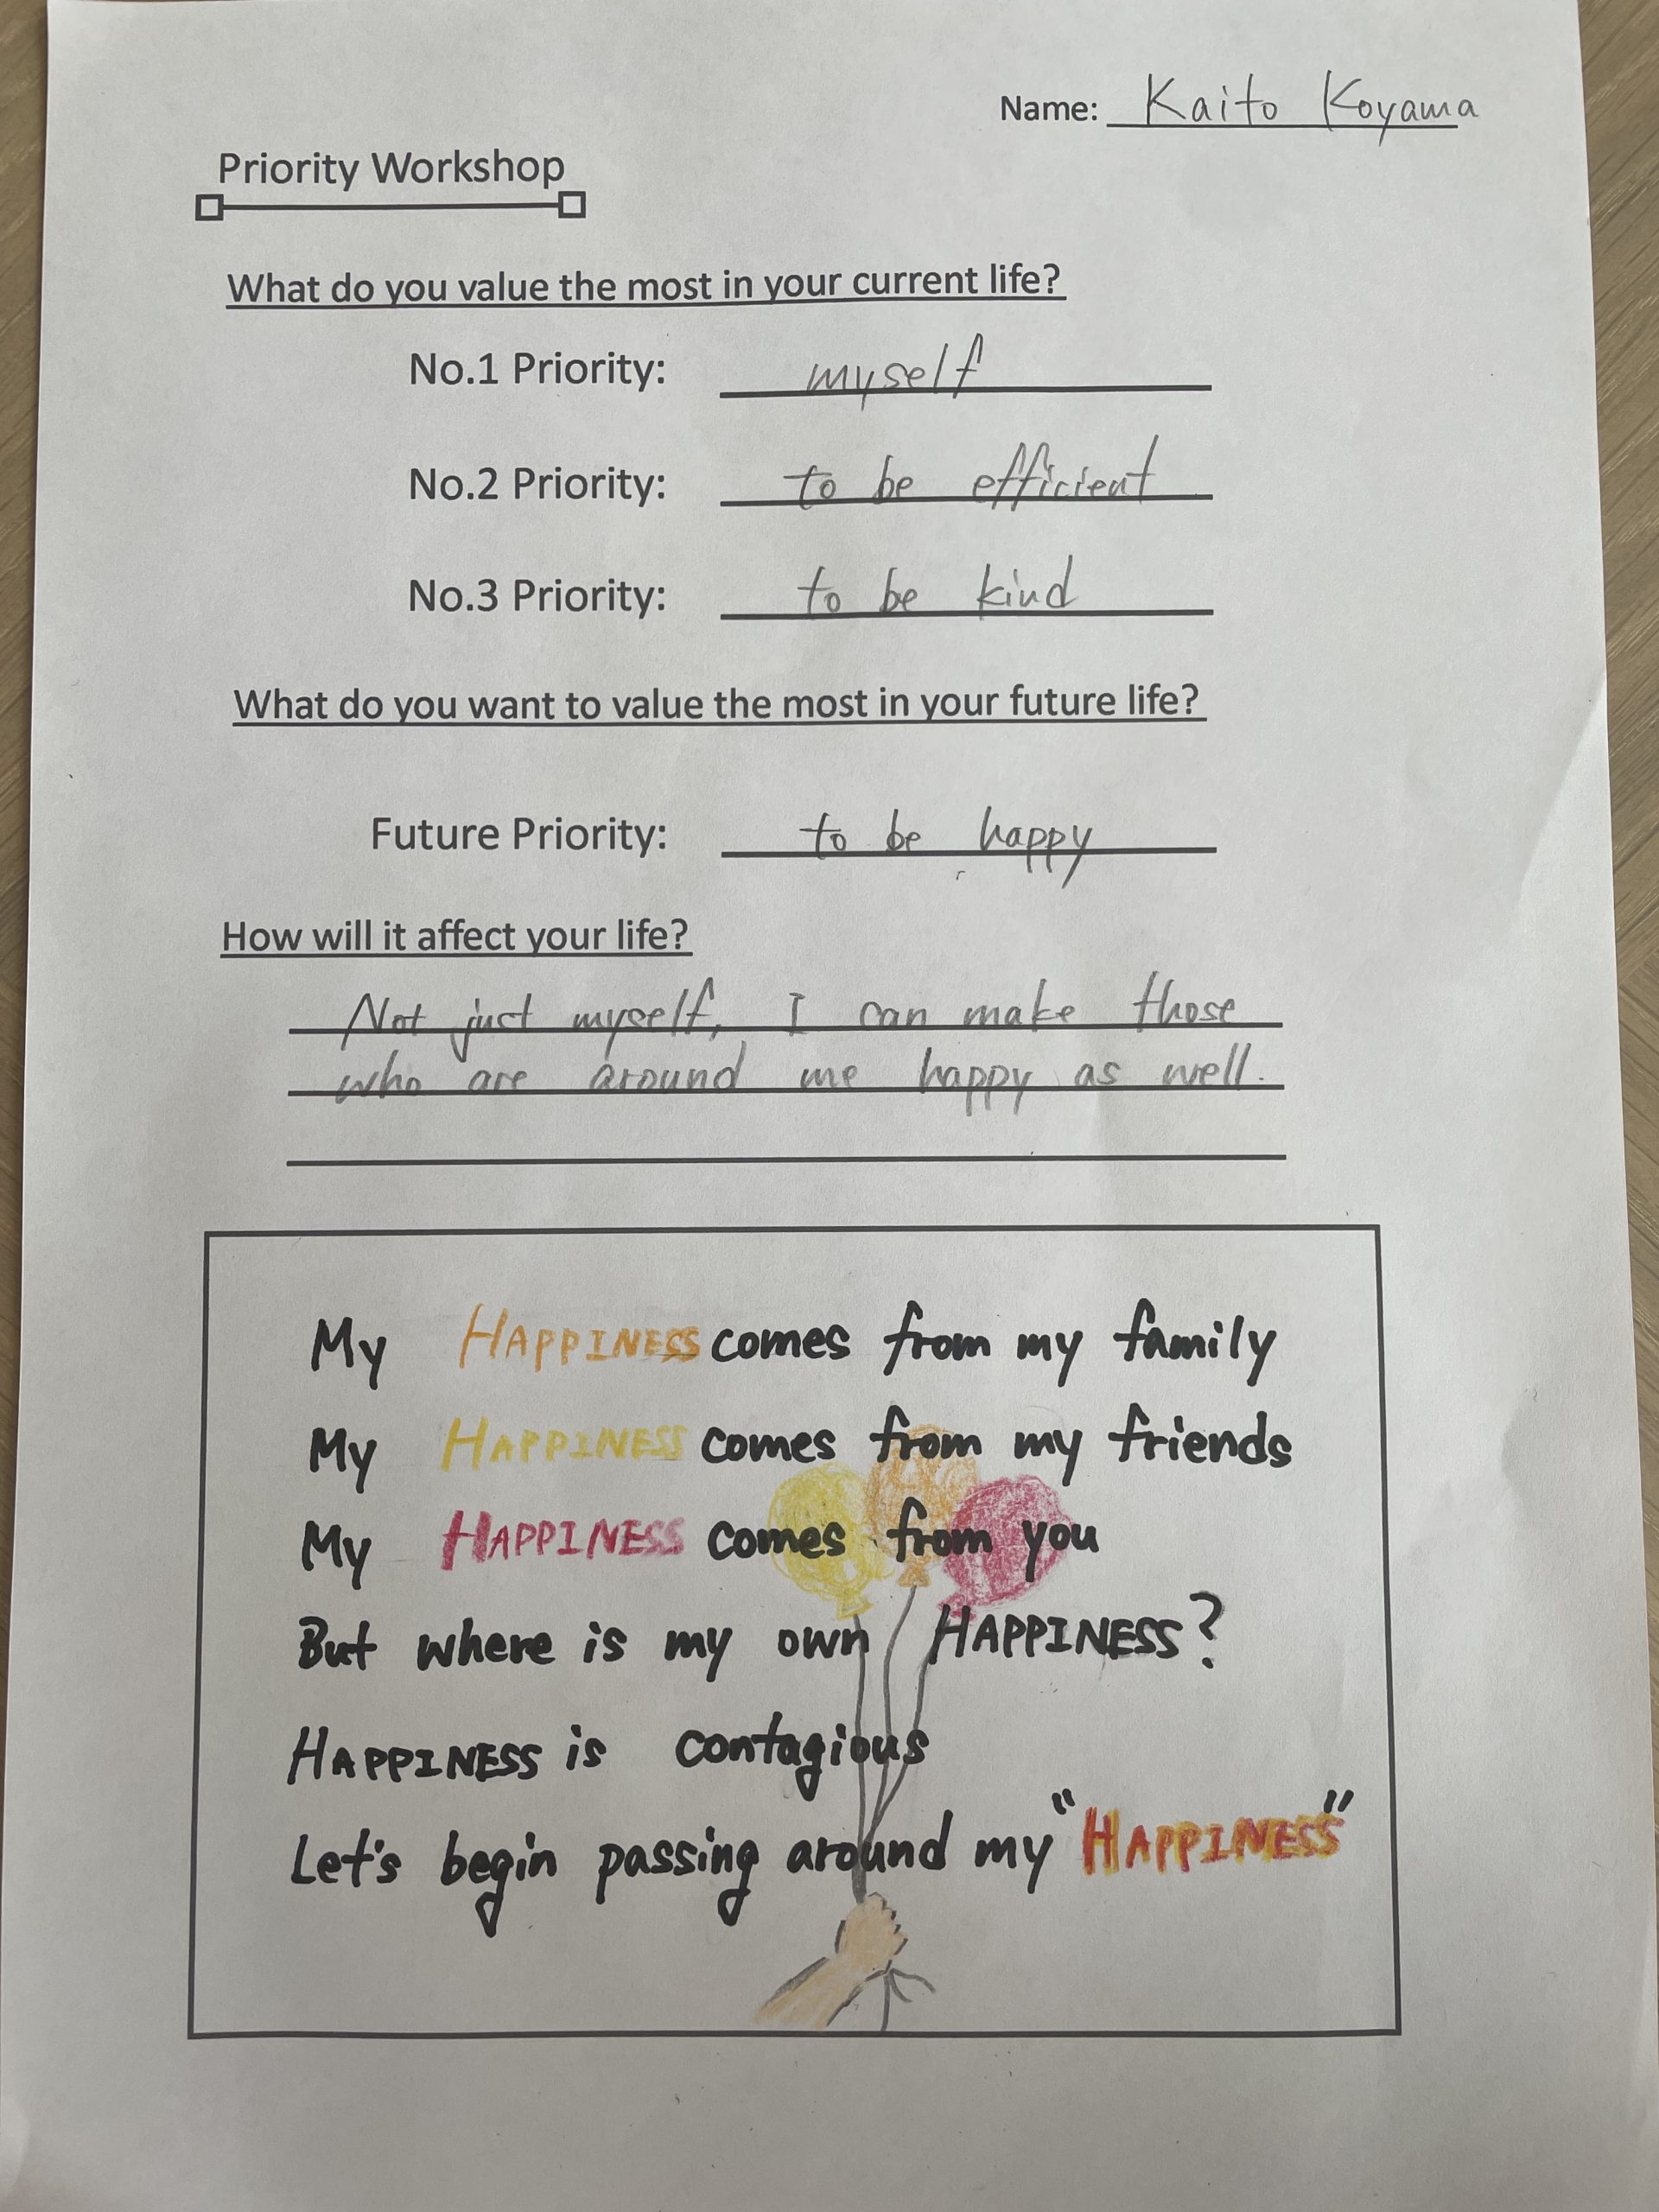 Name: Kaito Koyama
Priority Workshop
What do you value the most in your current life?
No.1 Priority: myself
No.2 Priority: to be efficient
No.3 Priority: to be kind
What do you want to value the most in your future life?
Future Priority: to be happy
How will it affect your life?
Not just myself, I can make those
who are around me happy as well.
My HAPPINESS comes from my family
My HAPPINESS comes from my friends
My HAPPINESS comes from you
But where is my own HAPPINESS?
HAPPINESS is contagious
Let's begin passing around my "HAPPINESS"